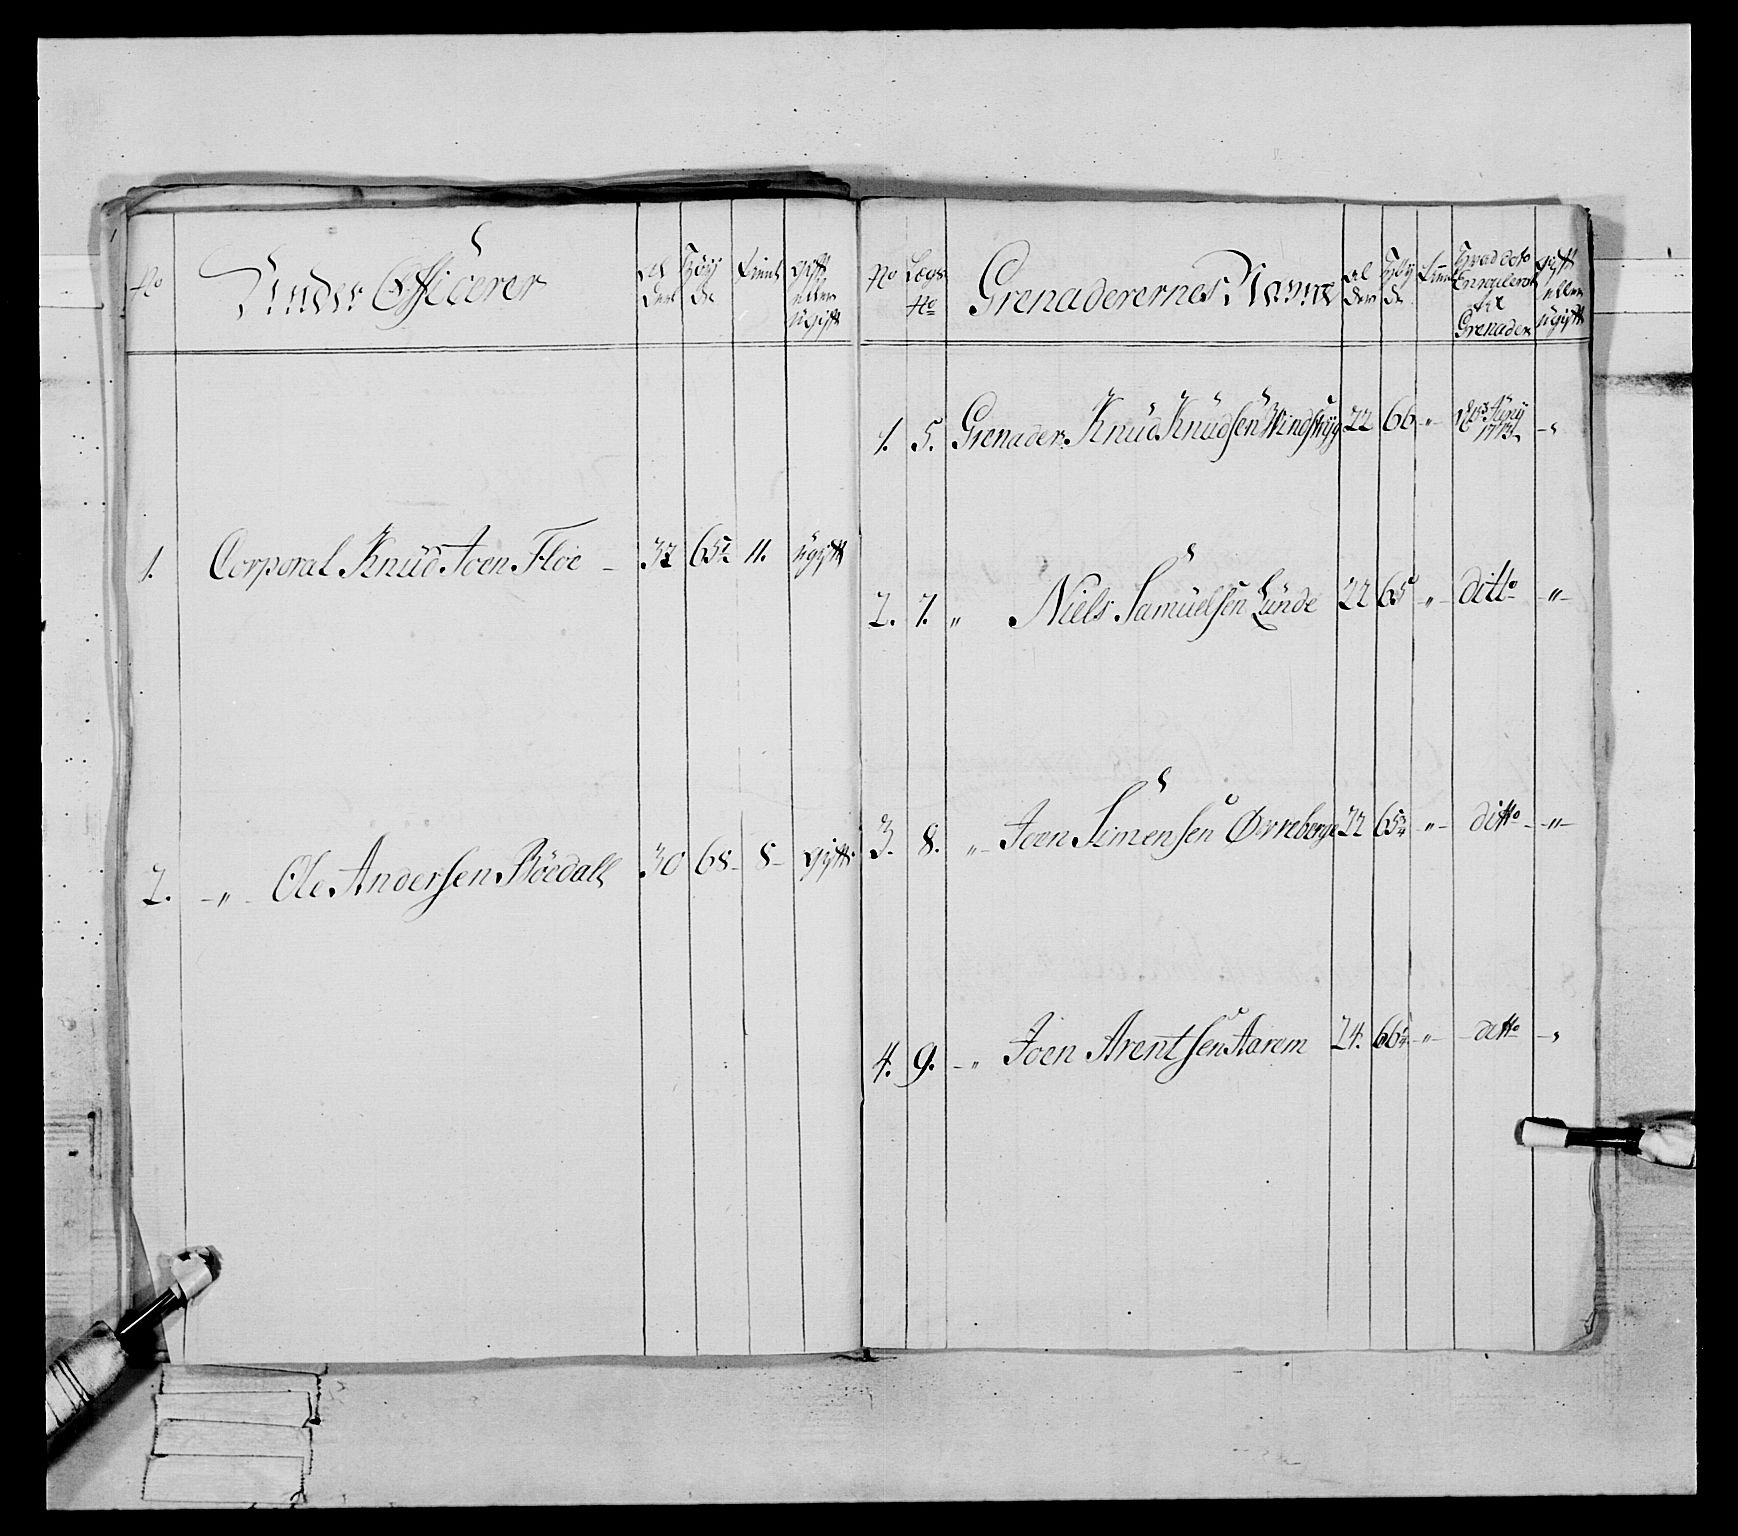 No Under Officerer Al der Höy de tient gift eller ugift
1. Corporal Knüd Joen Floe - 32 65½ 11. ügift
2. -„- Ole Andersen Böedall 30 68- 8- gift
No Legs No Grenaderernes Navne Al der Höy de tient Hvad dato Enroulleret til Grenader gift eller ugift
1. 5. Grenader Knüd Knüdsen 22 66 „ 1773 -„
2. 7. „ Niels Samüelsen Lünde 22 65 -„- ditto -„-
3. 8. „ Joen Simensen Örreberge 22 65¾ -„- ditto -„-
4. 9. -„ Joen Arentsen Aarem 24. 66 -„- ditto -„